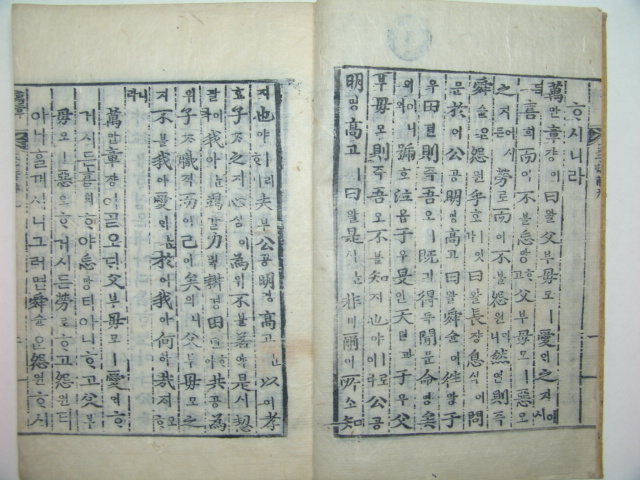 ᄒᆞ시니라
萬만章쟝이曰왈父부母모ㅣ愛ᄋᆡ之지어시
든喜희而이不블忘망ᄒᆞ고父부母모ㅣ惡오
之지어시든勞로而이不블怨원이니然연則즉
舜슌은怨원乎호ㅣ잇가曰왈長쟝息식이問
문於어公공明명高고曰왈舜슌이往왕于
우田뎐은則즉吾오ㅣ旣긔得득聞문命명矣
의어니와號호泣읍于우旻민天텬과于우父
부母모則즉吾오不블知지也야ㅣ로이다公공
明명高고ㅣ曰왈是시ᄂᆞᆫ非비爾이의所소知
지也야ㅣ라ᄒᆞ니夫부公공明명高고ᄂᆞᆫ以이孝
효子ᄌᆞ之지心심이爲위不블若약是시恝
괄이라我아ㅣ竭갈力력耕경田뎐ᄒᆞ야共공爲
위子ᄌᆞ職직而이已이矣의니父부母모之
지不블我아愛ᄋᆡᄂᆞᆫ於어我아何하哉ᄌᆡ오ᄒᆞ
니라
萬만章쟝이ᄀᆞᆯ오ᄃᆡ父부母모ㅣ愛ᄋᆡᄒᆞ
거시든喜희ᄒᆞ야忘망티아니ᄒᆞ고父부
母모ㅣ惡오ᄒᆞ거시든勞로ᄒᆞ고怨원티
아니ᄒᆞᆯ꺼시니그러면舜슌은怨원ᄒᆞ시